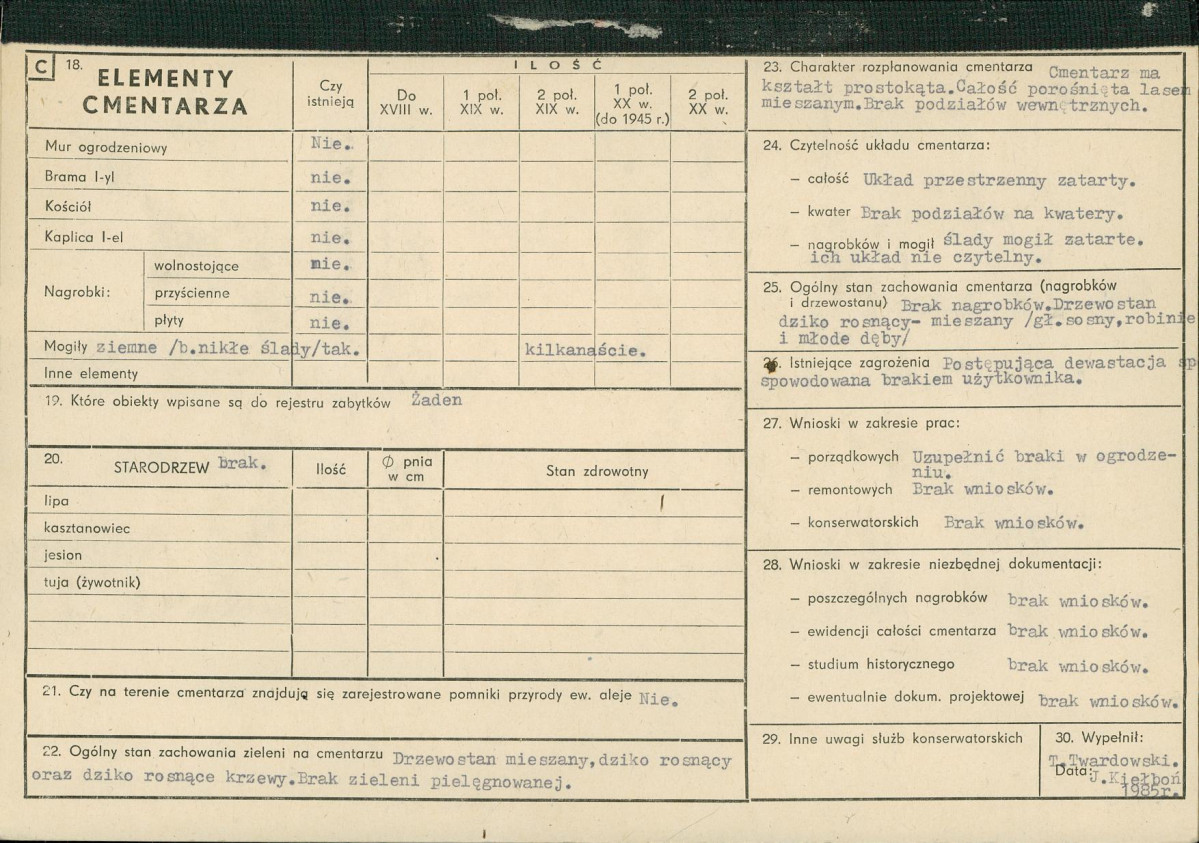 C 18. ELEMENTY CMENTARZA
Czy istnieją
ILOŚĆ
Do XVIII w.
1 poł. XIX w.
2 poł. XIX w.
1 poł. XX w. (do 1945 r.)
2 poł. XX w.
Mur ogrodzeniowy Nie.
Brama l-yl nie.
Kościół nie.
Kaplica l-el nie.
Nagrobki: wolnostojące nie.
przyścienne nie.
płyty nie.
Mogiły ziemne /b.nikłe ślady/tak. kilkanaście.
Inne elementy
19. Które obiekty wpisane są do rejestru zabytków Żaden
20. STARODRZEW brak. Ilość Ø pnia w cm Stan zdrowotny
lipa
kasztanowiec
jesion
tuja (żywotnik)
21. Czy na terenie cmentarza znajdują się zarejestrowane pomniki przyrody ew. aleje Nie.
22. Ogólny stan zachowania zieleni na cmentarzu Drzewostan mieszany,dziko rosnący
oraz dziko rosnące krzewy.Brak zieleni pielęgnowanej.
23. Charakter rozplanowania cmentarza Cmentarz ma
kształt prostokąta.Całość porośnięta lasem
mieszanym.Brak podziałów wewnętrznych.
24. Czytelność układu cmentarza:
– całość Układ przestrzenny zatarty.
– kwater Brak podziałów na kwatery.
– nagrobków i mogił ślady mogił zatarte.
ich układ nie czytelny.
25. Ogólny stan zachowania cmentarza (nagrobków
i drzewostanu) Brak nagrobków.Drzewostan
dziko rosnący- mieszany /gł.sosny,robinie
i młode dęby/
26. Istniejące zagrożenia Postępująca dewastacja sp
spowodowana brakiem użytkownika.
27. Wnioski w zakresie prac:
– porządkowych Uzupełnić braki w ogrodze-
niu.
– remontowych Brak wniosków.
– konserwatorskich Brak wniosków.
28. Wnioski w zakresie niezbędnej dokumentacji:
– poszczególnych nagrobków brak wniosków.
– ewidencji całości cmentarza brak wniosków.
– studium historycznego brak wniosków.
– ewentualnie dokum. projektowej brak wniosków.
29. Inne uwagi służb konserwatorskich
30. Wypełnił:
T.Twardowski.
Data: J.Kiełboń
1985r.